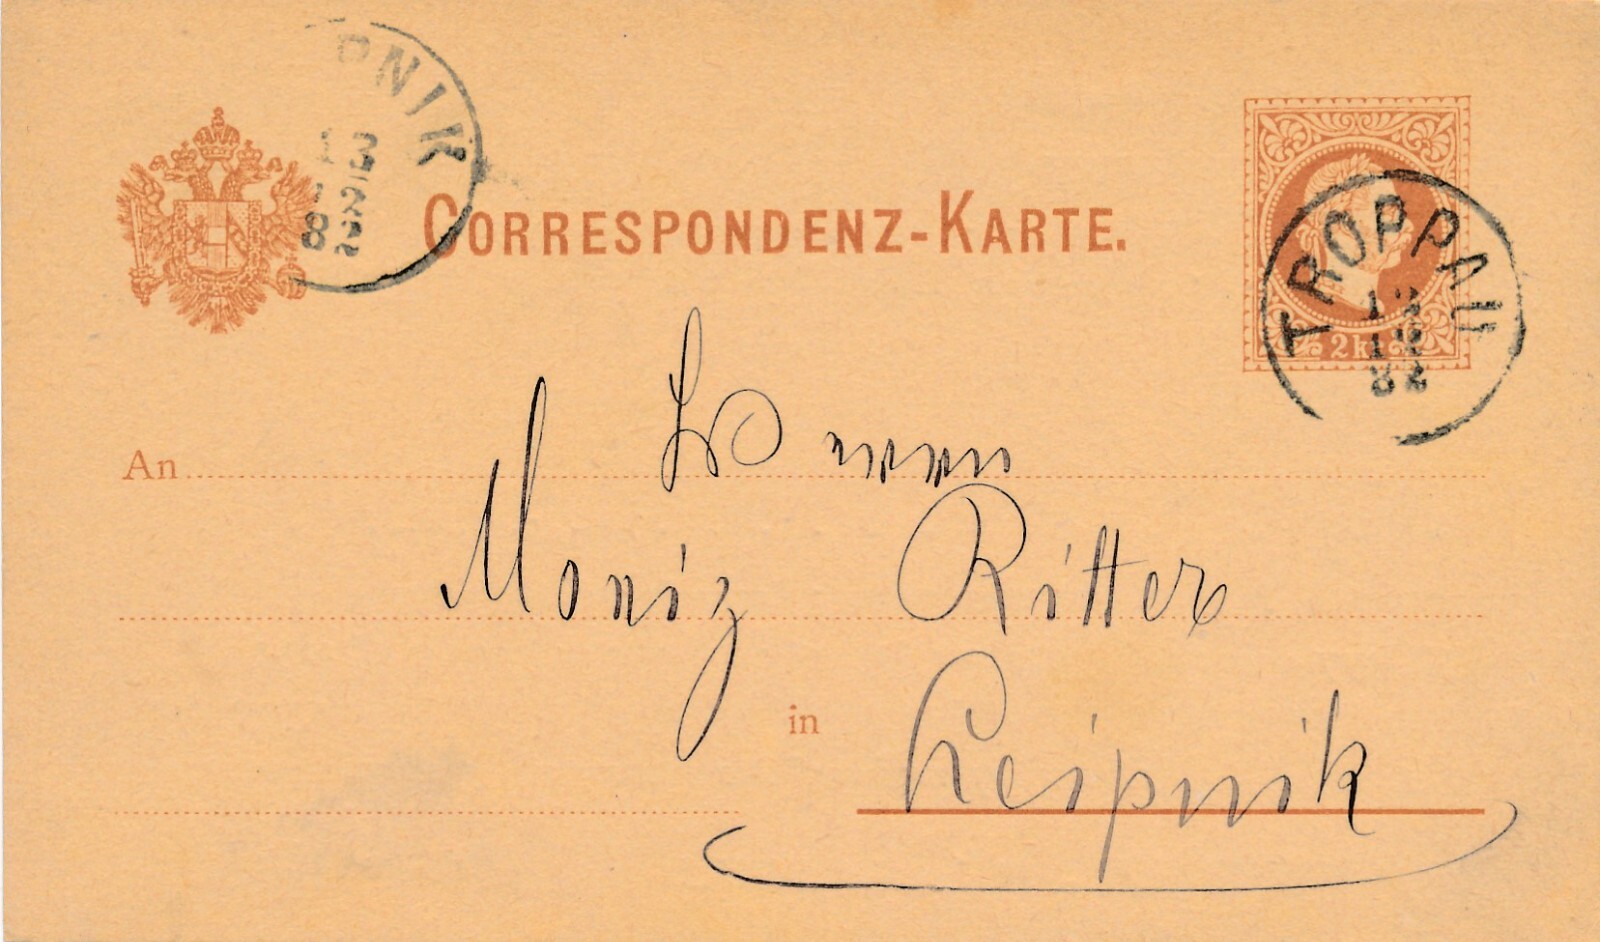 PNIK
13
12
82
CORRESPONDENZ-KARTE.
TROPPAU
12
82
2 kr
An Herrn
Moriz Ritter
in Leipnik